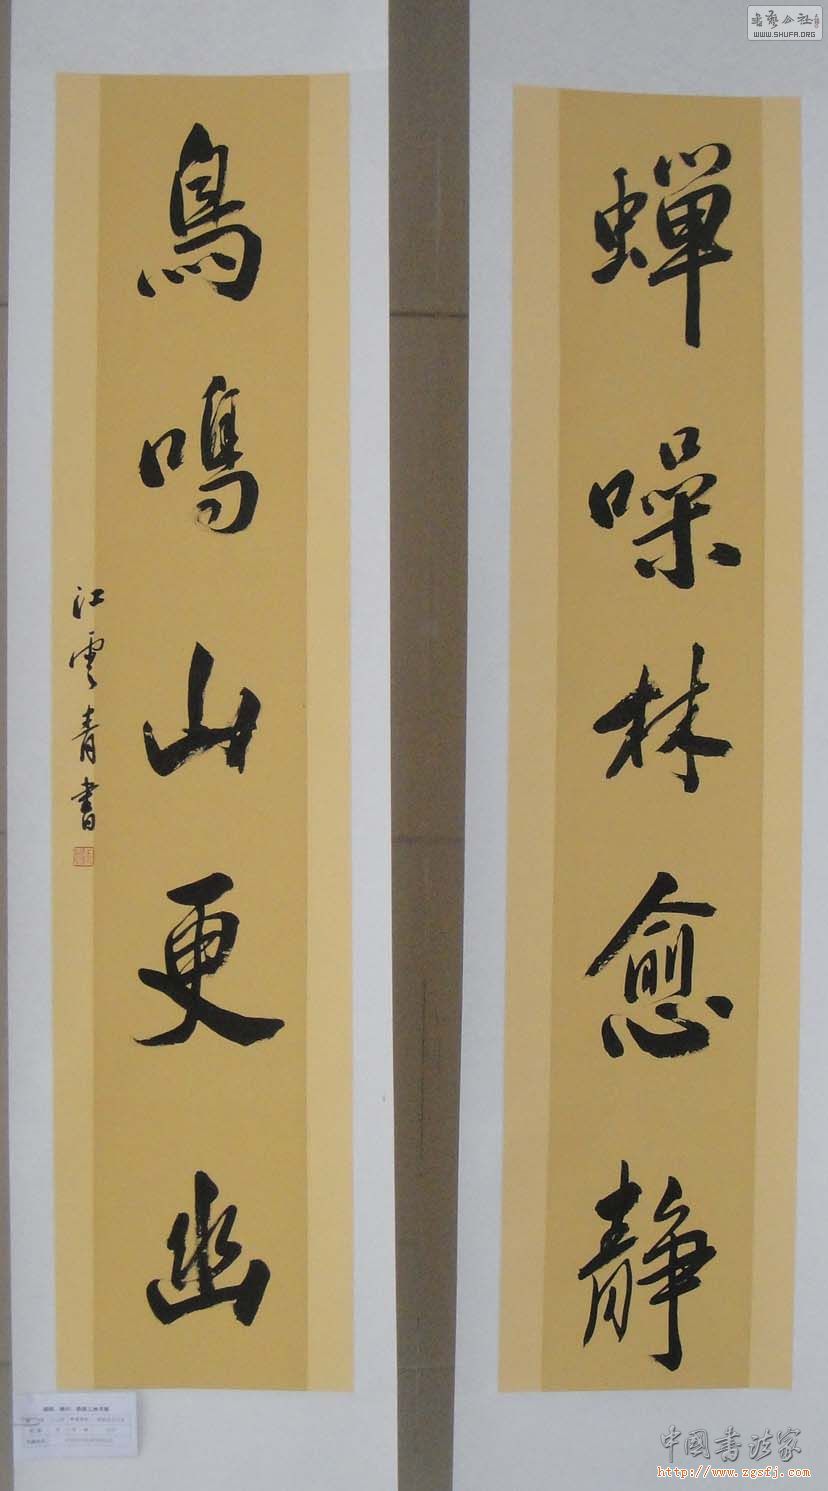 蟬噪林愈靜
鳥鳴山更幽
江雲青書
書藝公社
WWW.SHUFA.ORG
中國書法家
http://www.zgsfj.com